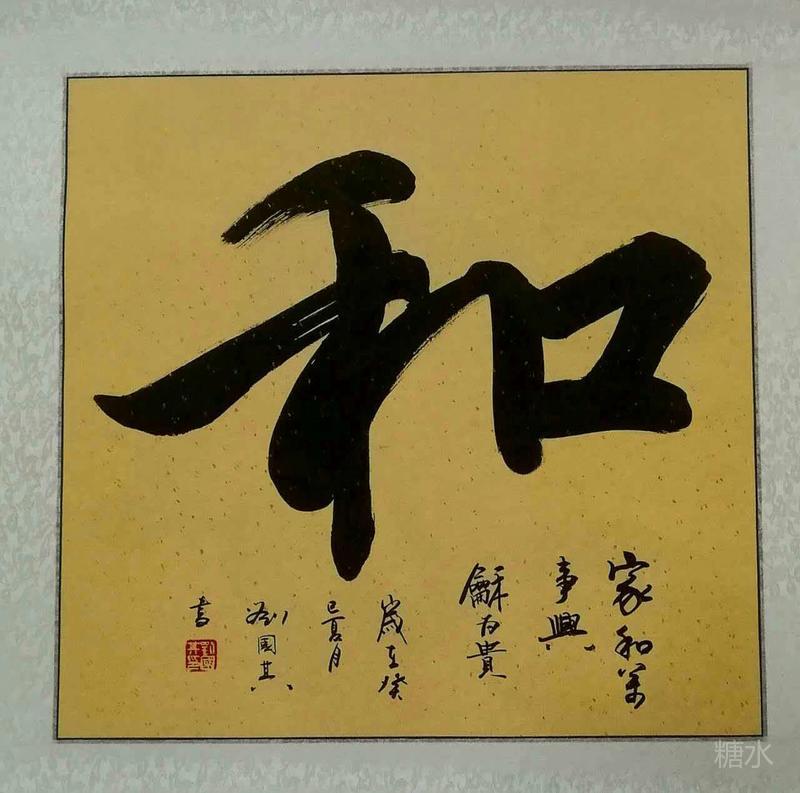 和
家和万
事興
龢为貴
歲在癸
巳夏月
刘国其
書
糖水